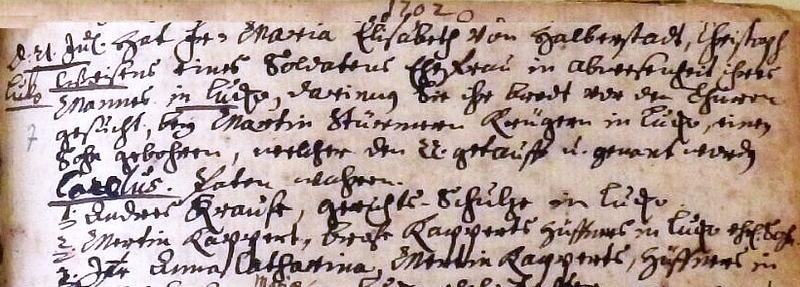 1702
d. 21. Jul. hat Fr. Maria Elisabeth von Halberstadt, Christoph
Ludo Weisens eines Soldatens EheFrau in abwesenheit ihres
Mannes in Ludo, darinnen Sie ihr brodt vor den Thüren
7 gesucht, bey Martin Stürmern Krügern in Ludo, einen
Sohn gebohren, welcher den 22. getaufft u. genant worden
Carolus. Paten wahren.
1. Andres Krause, gerichts-Schulze in Ludo
2. Mertin Kappert, Kapperts Hüffners in Ludo ehel. Sohn
3. Jfr. Anna Catharina, Mertin Kapperts, Hüffners in